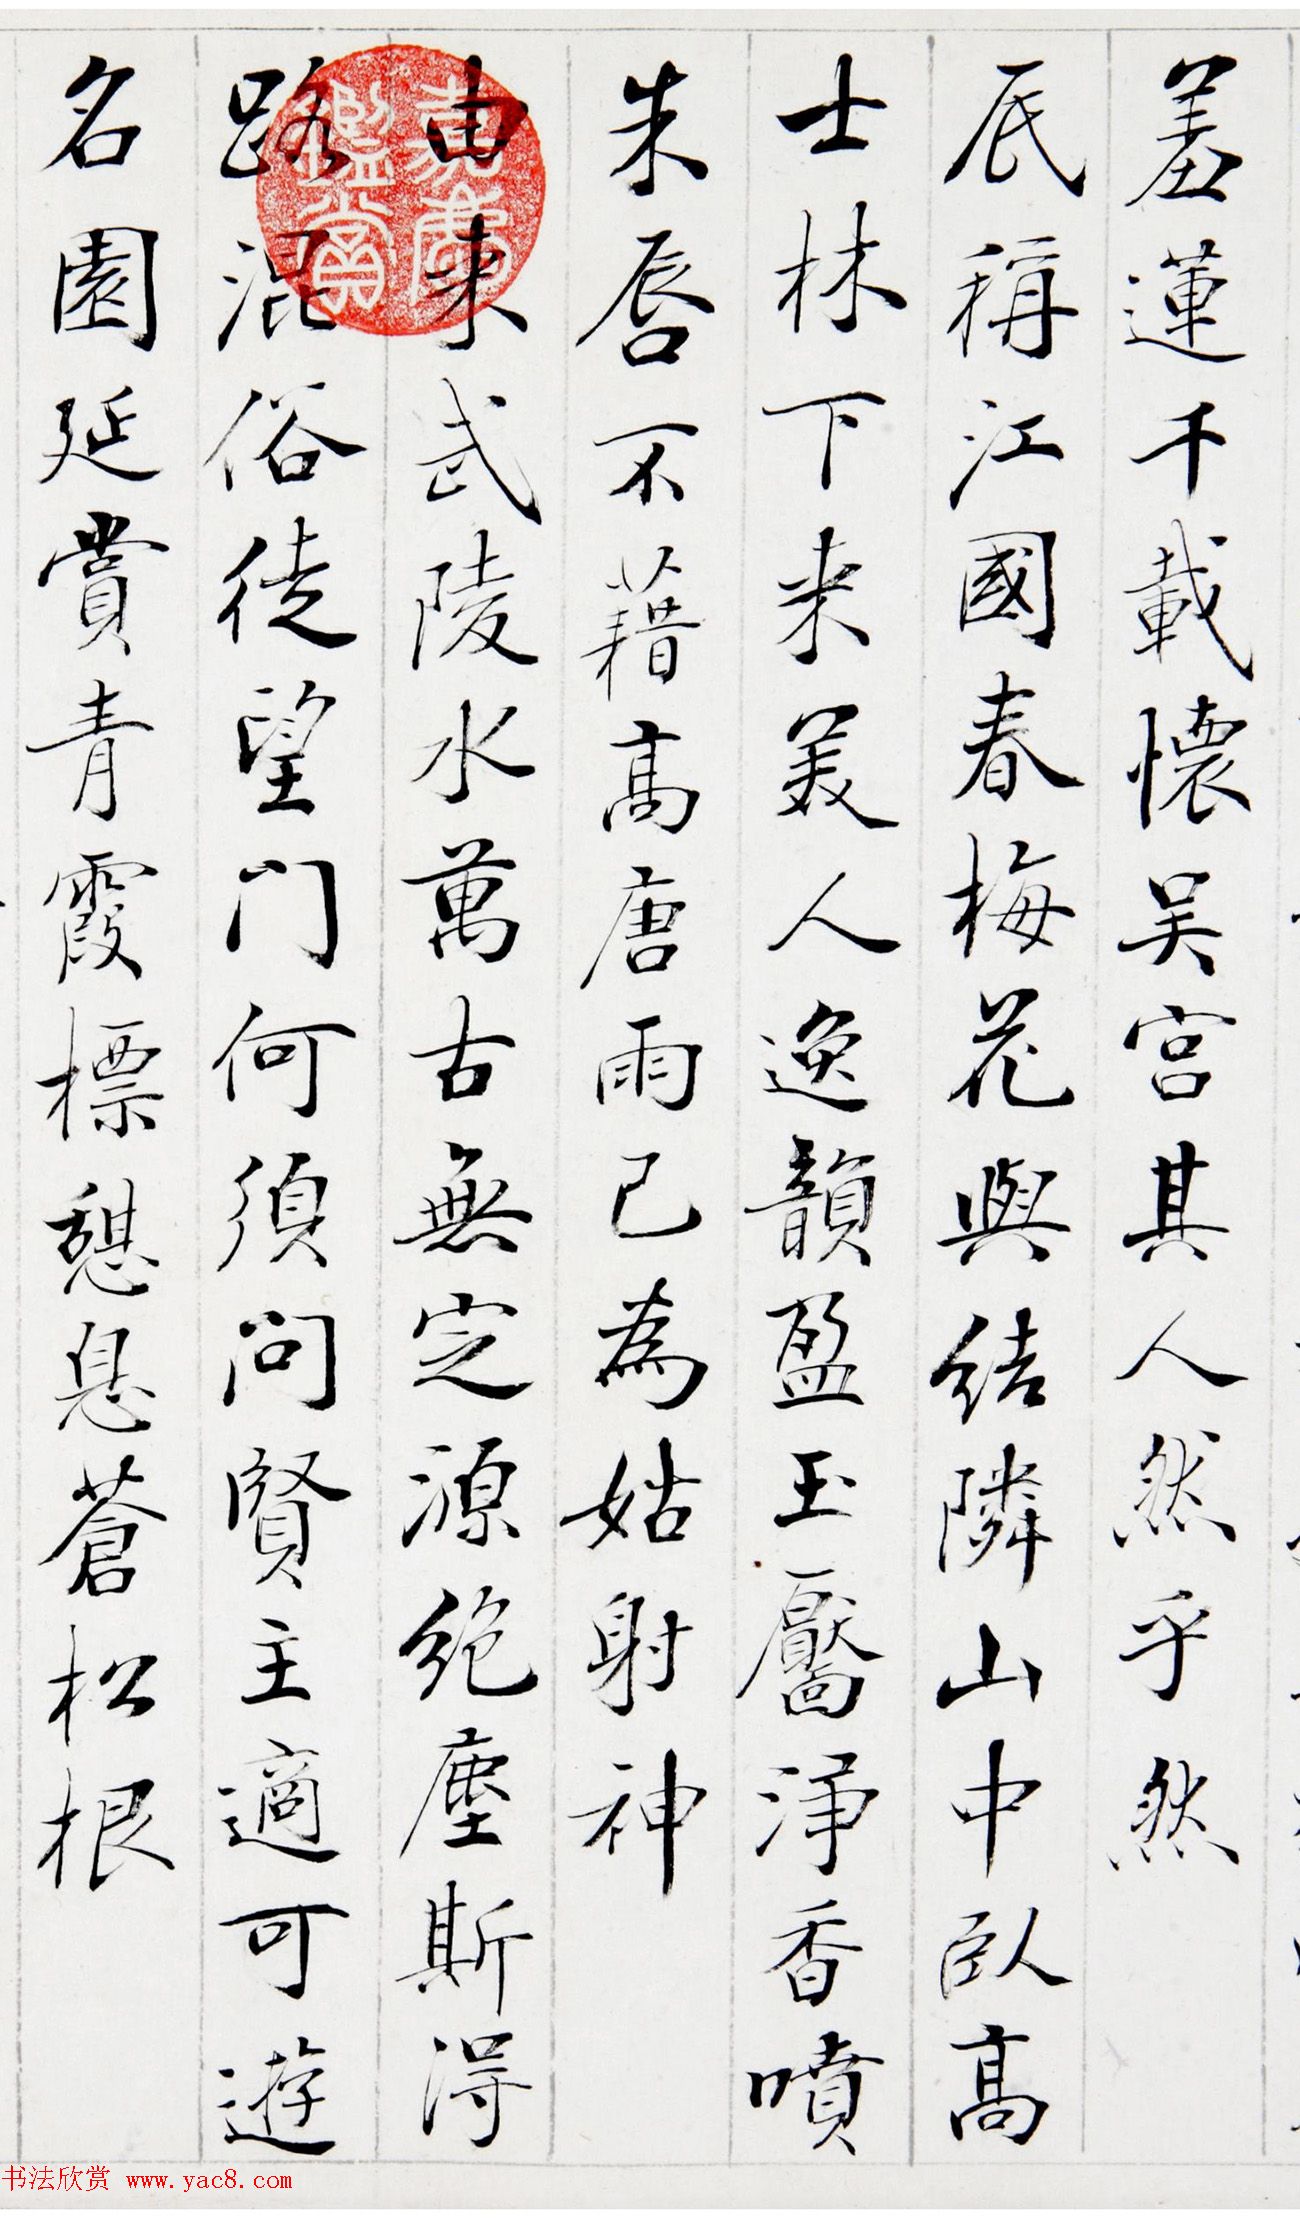 羞蓮千載懷吴宫其人然乎然
辰稱江國春梅花與結隣山中臥高
士林下来美人逸韻盈玉靨淨香噴
朱唇不藉高唐雨已為姑射神
由来武陵水萬古無定源絶塵斯得
路混俗徒望门何須问賢主適可遊
名園延賞青霞標憩息蒼松根
嘉慶
鑑賞
书法欣赏 www.yac8.com